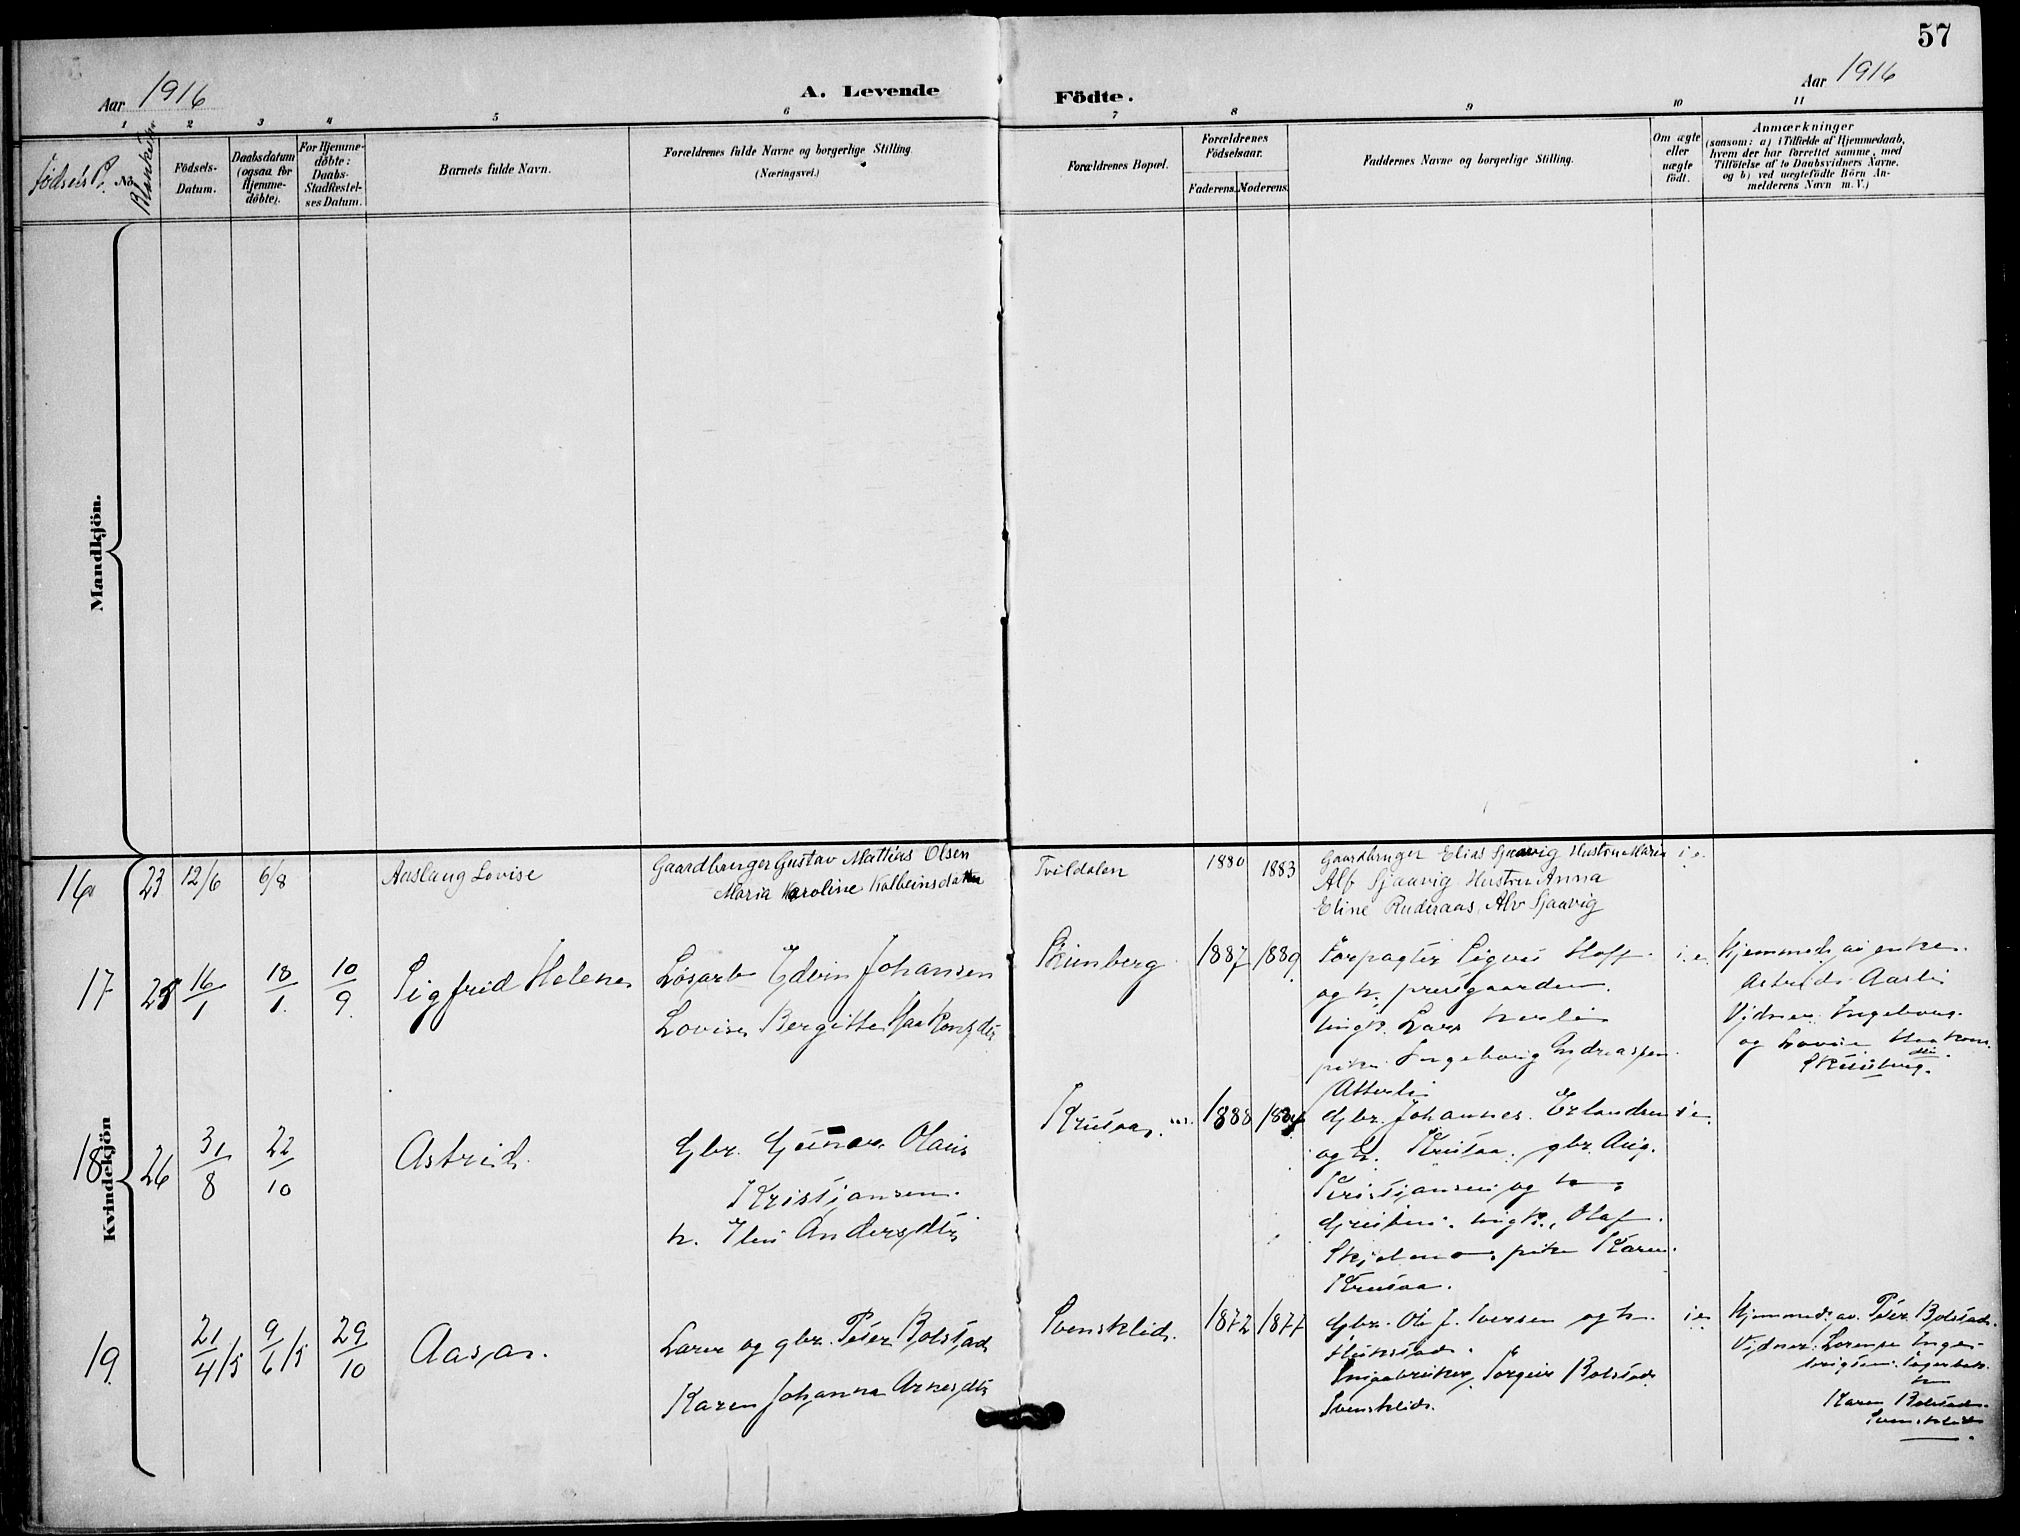 57
Aar 1916
A. Levende
Födte.
Aar 1916
1 2 3 4 5 6 7 8 9 10 11
No.
Födsels-
Datum.
Daabsdatum
(ogsaa for
Hjemme-
döbte).
For Hjemme-
døbte:
Daabs-
Stadfæstel-
ses Datum.
Barnets fulde Navn.
Forældrenes fulde Navne og borgerlige Stilling.
(Næringsvei.)
Forældrenes Bopæl.
Forældrenes
Födselsaar.
Faderens.
Moderens.
Faddernes Navne og borgerlige Stilling.
Om ægte
eller
uægte
födt.
Anmærkninger
(saasom: a) i Tilfælde af Hjemmedaab,
hvem der har forrettet samme, med
Tilföielse af to Daabsvidners Navne,
og b) ved uægtefödte Börn An-
melderens Navn m. V.)
Mandkjön.
Kvindekjön
16a 23 12/6 6/8
Aaslaug Lovise
Gaardbruger Gustav Mattias Olsen
Maria Karoline Kolbeinsdatter
Tvildalen
1880 1883
Gaardbruger Elias Sjaavig Hustru Maria
Alf Sjaavig Hustru Anna
Eline Ruderaas, Alv Sjaavig
i.e.
17 25 16/1 18/1 10/9
Sigfrid Helene
Løsarb Edvin Johansen
Lovise Bergitte Haakonsdtr
1887 1889
Forpagter Sigurd Hoff
og h. prestgaarden.
ungk. Lars
pike Ingeborg Andreassen
i.e.
Hjemmed. av enke
Astrid Aasli
Vidner: Ingeborg
og Lovise Haakons
dtr
18 26 31/8 22/10
Astrid
Gbr. Gunnar Olaus
Kristjansen.
h. Elen Andersdtr
Krutaa
1888
Gbr. Johannes Erlandsen
og h. Krutaa, gbr. Aug.
Kristjansen og h.
ungk. Olaf
pike Karen
Krutaa.
i.e.
19 21/4/15 9/6/15 29/10
Aasa.
Lærer og gbr. Peter Bolstad
Karen Johanna Arnesdtr
Svensklid.
1872 1877
Gbr. Ole J. Iversen og h.
Torgeir Bolstad
Svensklid.
i.e.
Hjemmed. av Peter Bolstad.
Vidner: Lorense Inge-
brigtsen
Karen Bolstad
Svensklid